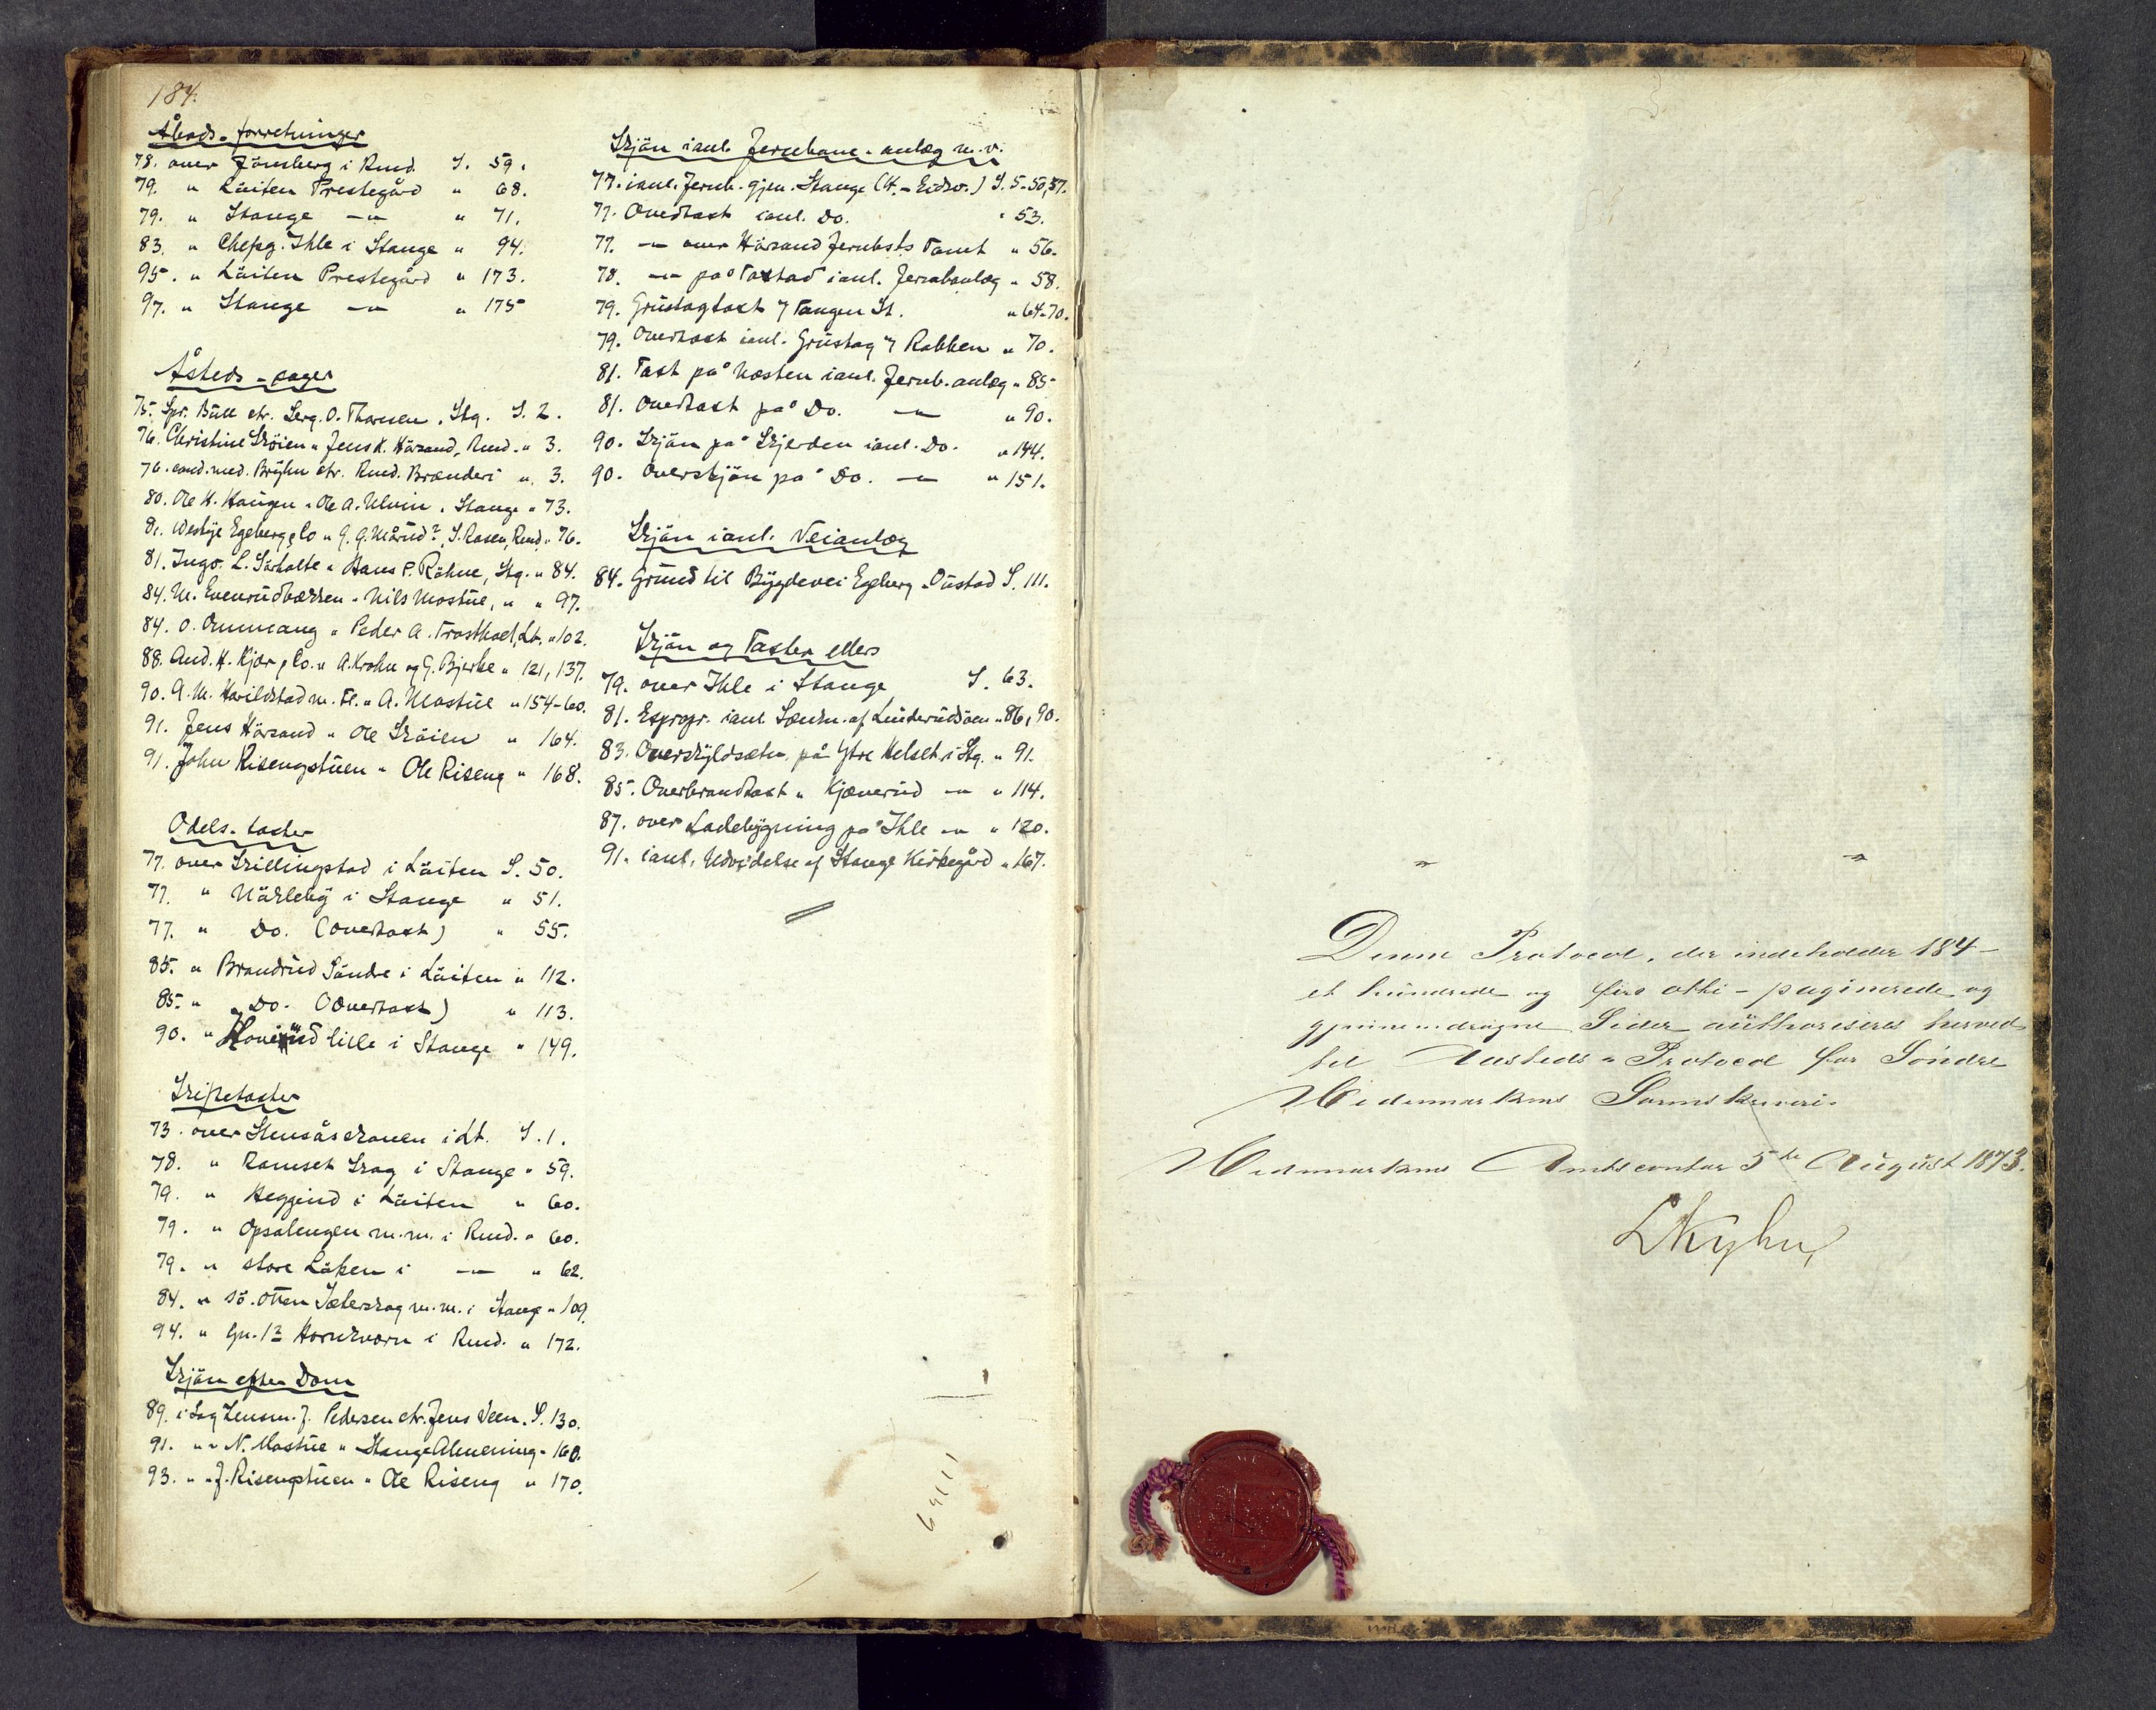 184.
Åbods-forretninger
78. over Jönsberg i Rmd. S. 59.
79. " Löiten Prestegård " 68.
79. " Stange —"— " 71.
83. " Chefsg. Ihle i Stange " 94.
95. " Löiten Prestegård " 173.
97. " Stange —"— " 175
Åsteds-sager
75. Spr. Büll ctr. Serg. O. Thorsen. Stg. S. 2.
76. Christine Sköien " Jens K. Hörsand, Rmd. " 3.
76. cand. med. Brÿhn ctr. Rmd. Brænderi " 3.
80. Ole H. Haugen " Ole A. Ulvin. Stange " 73.
81. Westye Egeberg & Co " G. G. Mårüd?, S. Rosen, Rmd. " 76.
81. Ingv. L. Sörholte " Hans P. Röhne, Stg. " 84.
84. M. Evenrüdbakken " Nils Mostüe, " " 97.
84. O. Ommang " Peder A. Frosthoel, Lt. " 102.
88. And. H. Kjær & Co. " A. Krohn og G. Bjerke " 121, 137.
90. A. M. Harildstad m. Fl. " A. Mostüe " 154-60.
91. Jens Hörsand " Ole Sköien " 164.
91. John Risengstüen " Ole Riseng " 168.
Odels-taxter
77. over Skillingstad i Löiten S. 50.
77. " Nöklebÿ i Stange " 51.
77. " Do. (overtaxt) " 55.
85. " Brandrüd Söndre i Löiten " 112.
85. " Do. (Overtaxt) " 113.
90. " Hoverüd lille i Stange " 149.
Skiftetaxter
73. over Stensåsskoven i Lt. S. 1.
78. " Romset Skog i Stange " 59.
79. " Heggerüd i Löiten " 60.
79. " Opsalengen m.m. i Rmd. " 60.
79. " store Löken i —"— " 62.
84. " sö. Otten Sæterskog m.m. i Stange " 109.
94. " Gn. 13 Hornkværn i Rmd. " 172.
Skjön efter Dom
89. i Sag Lensm. J. Pedersen ctr. Jens Veen. S. 130.
91. " " N. Mostüe " Stange Almening " 160.
93. " " J. Risengstüen " Ole Riseng " 170.
Skjön ianl. Jernbane-anlæg m.v.
77. ianl. Jernb. gjen. Stange (H.-Eidsv.) S. 5-50, 57.
77. Overtaxt ianl. Do. " 53.
77. —"— over Hörsand Jernbsts Tomt " 56.
78. —"— på Tostad ianl. Jernbanlæg " 58.
79. Grüstagtaxt v/ Tangen St. " 64-70.
79. Overtaxt ianl. Grüstag v/ Rabben " 70.
81. Taxt på Næsten ianl. Jernb. anlæg " 85
81. Overtaxt på Do. —"— " 90.
90. Skjön på Skjerden ianl. Do. " 144.
90. Overskjön på Do. —"— " 151.
Skjön ianl. Veianlæg
84. Gründ til Bÿgdevei Egeberg-Oüstad S. 111.
Skjön og Taxter ellers
79. over Ihle i Stange S. 63.
81. Expropr. ianl. Sænkn. af Linderüdsöen " 86, 90.
83. Overskÿldsætn. på Ytre Helset i Stg. " 91.
85. Overbrandtaxt " Kjæverüd —"— " 114.
87. over Ladebÿgning på Ihle —"— " 120.
91. ianl. Udvidelse af Stange Kirkegård " 167.
Denne Protocol, der indeholder 184 –
et hundrede og fire otti – paginerede og
gjennemdragne Sider authoriseres herved
til Aasteds-Protocol for Söndre
Hedemarkens Sorenskriveri.
Hedemarkens Amtscontor 5te August 1873.
LKyhn